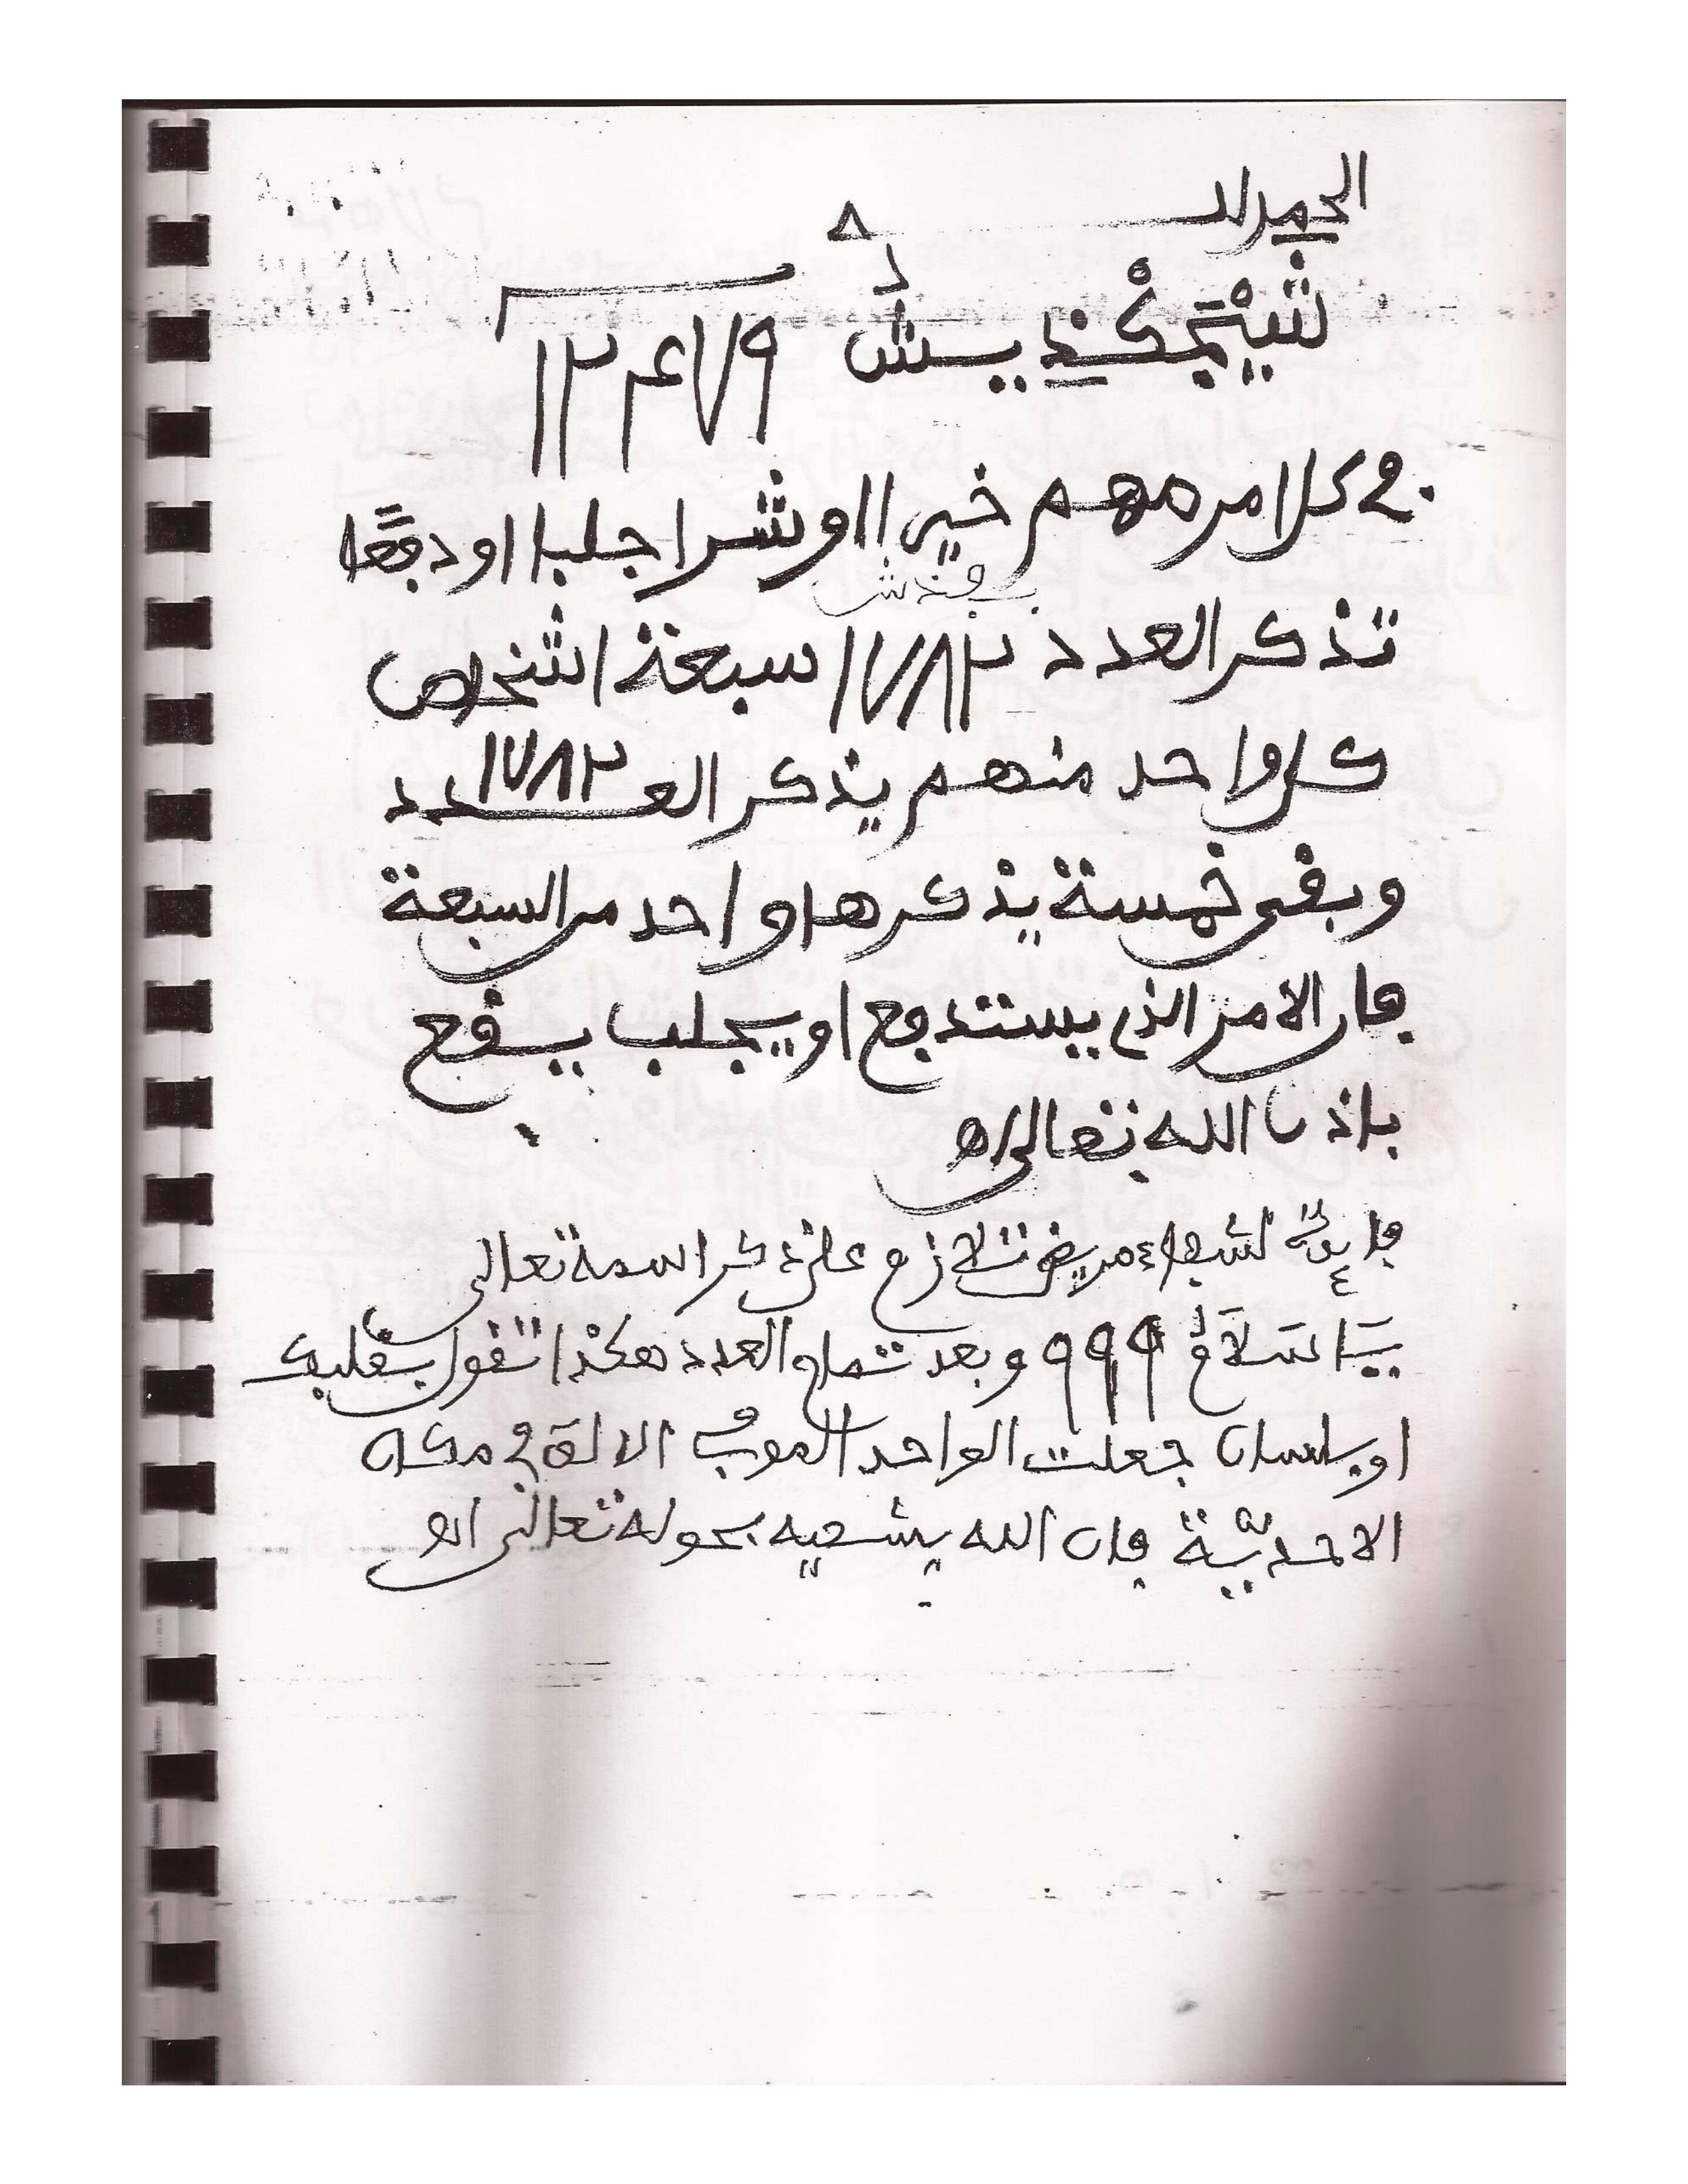 الحمد لله
١٢٤٧٩
في كل امر مهم خيرا او شرا جلبا او دفعًا
تذكر العدد ١٧٨٢ سبعة اشخاص
كل واحد منهم يذكر العدد ١٧٨٢
وبقى خمسة يذكرها واحد من السبعة
فان الامر الذي يستدفع او يجلب يقع
باذن الله تعالى اه
فايدة لشفاء مريض تلازم على ذكر اسمه تعالى
يَا سَلَامُ ٩٩٩ وبعد تمام العدد هكذا تقول بقلبك
او بلسان جعلت الواحد الالف في
الاحديّة فان الله يشفيه بحوله تعالى اه